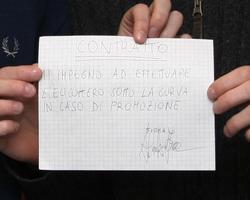 CONTRATTO
MI IMPEGNO AD EFFETTUARE
ELICOTTERO SOTTO LA CURVA
IN CASO DI PROMOZIONE
FIRMA